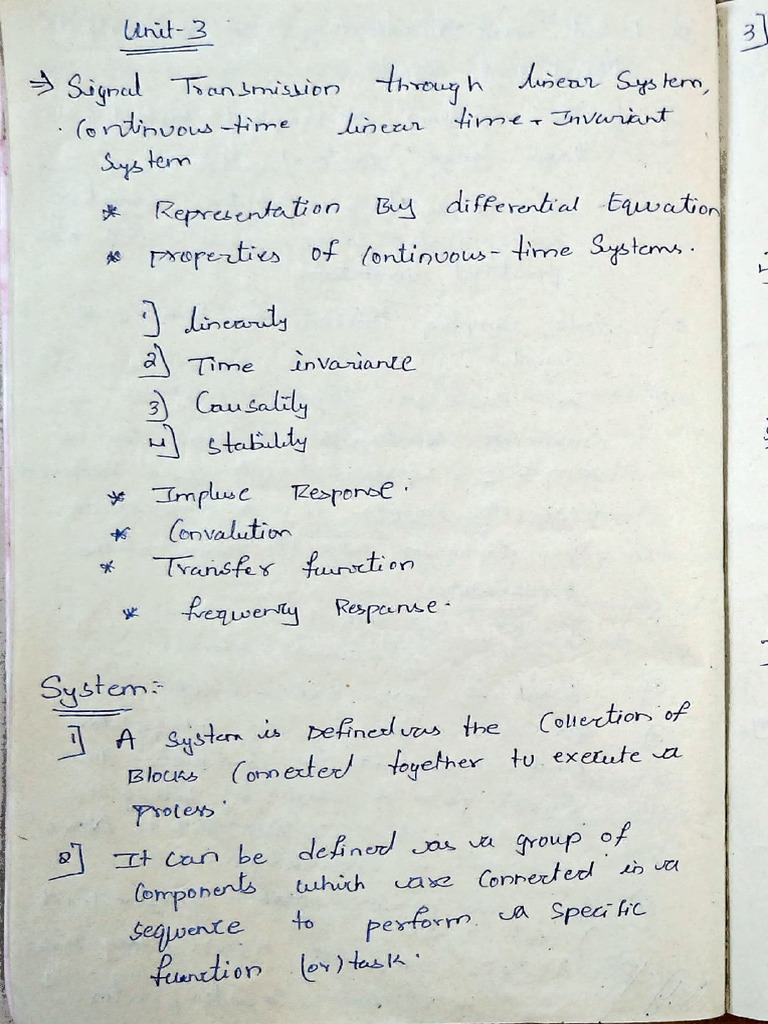 Unit-3
⇒ Signal Transmission through linear System,
Continuous-time linear time - Invariant
System
* Representation By differential Equation
* properties of Continuous-time Systems.
1] linearity
2] Time invariance
3] Causality
4] stability
* Impluse Response.
* Convalution
* Transfer function
* frequency Response.
System:-
1] A system is Defined as the Collection of
Blocks Connected together to execute a
process.
2] It can be defined as a group of
components which are Connected in a
sequence to perform a specific
function (or) task.
3]